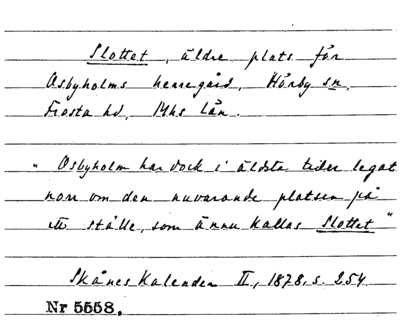 Slottet, äldre plats för
Osbyholms herregård, Hörby sn,
Frosta hd, Mhs län.
"Osbyholm har dock i äldsta tider legat
norr om den nuvarande platsen på
ett ställe, som ännu kallas Slottet"
Skånes Kalender II, 1878, s. 254.
Nr 5558.